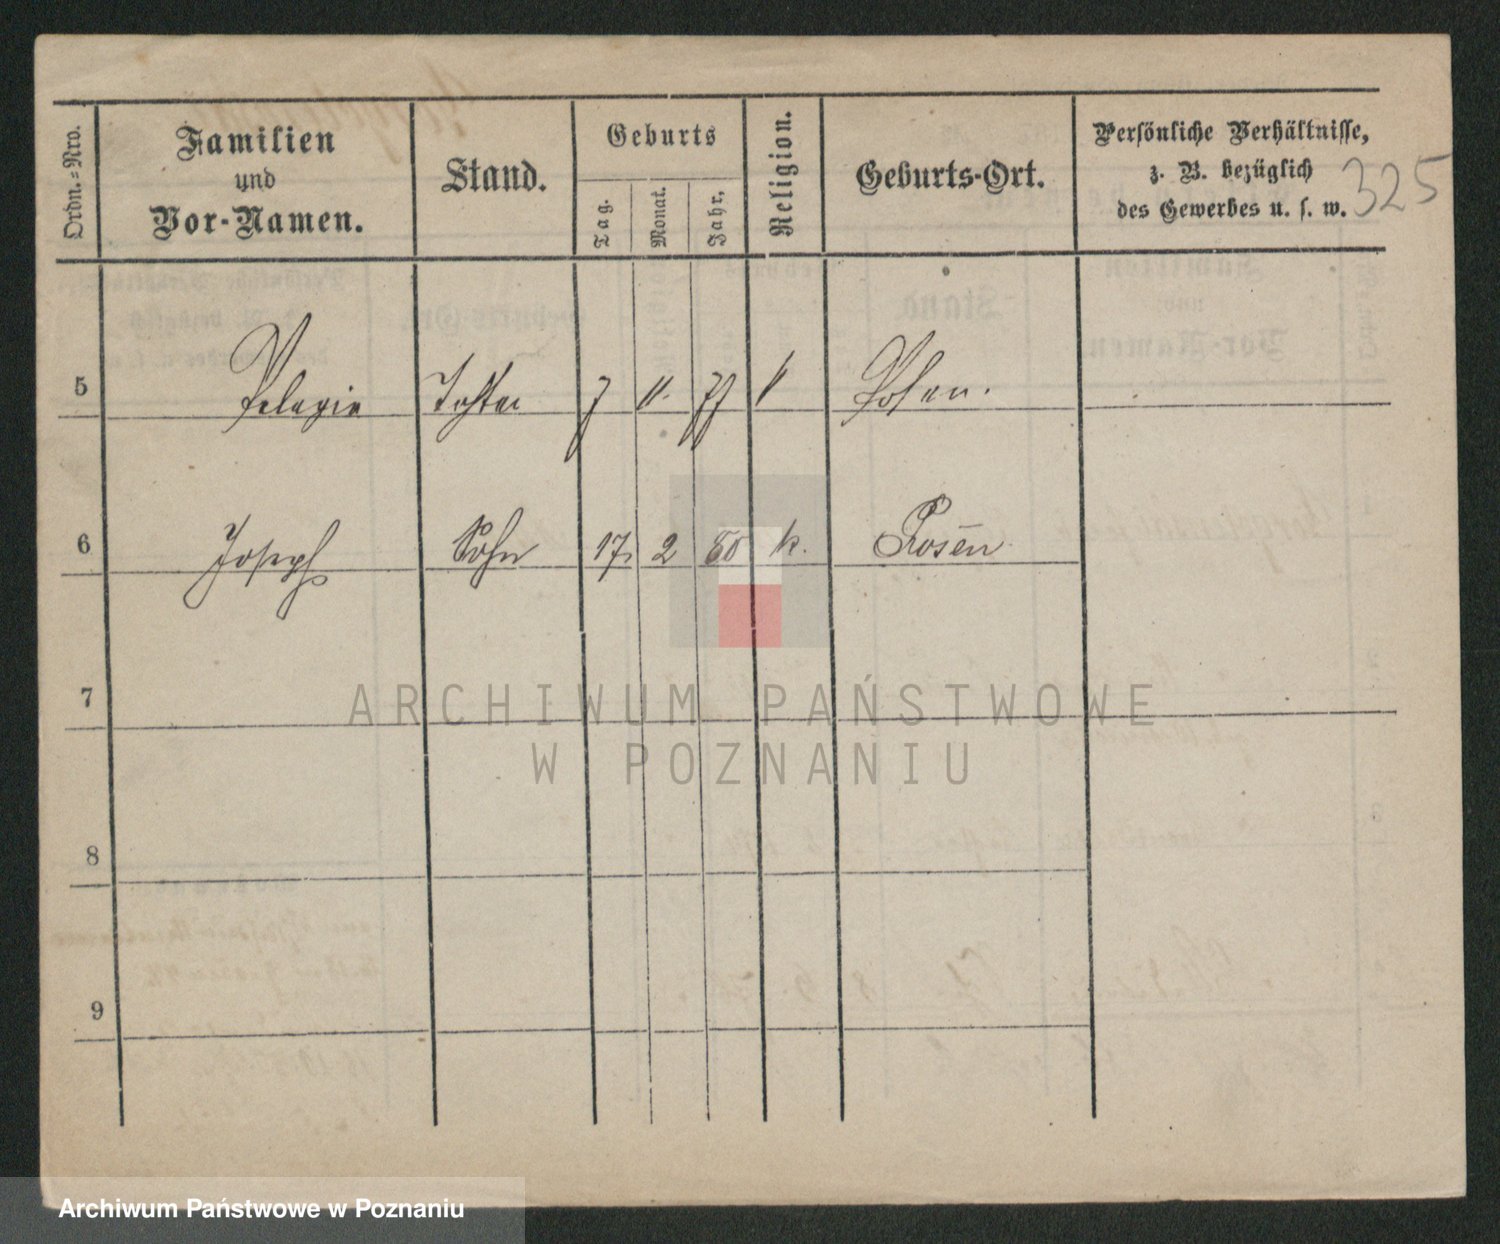 Ordn.-Nro.
Familien
und
Vor-Namen.
Stand.
Geburts
Tag.
Monat.
Jahr.
Religion.
Geburts-Ort.
Persönliche Verhältnisse,
z. B. bezüglich
des Gewerbes u. s. w.
325
5 Pelagia Tochter 7 11. 77 Posen.
6 Joseph Sohn 17. 2 80 k. Posen
7
8
9
ARCHIWUM PAŃSTWOWE
W POZNANIU
Archiwum Państwowe w Poznaniu